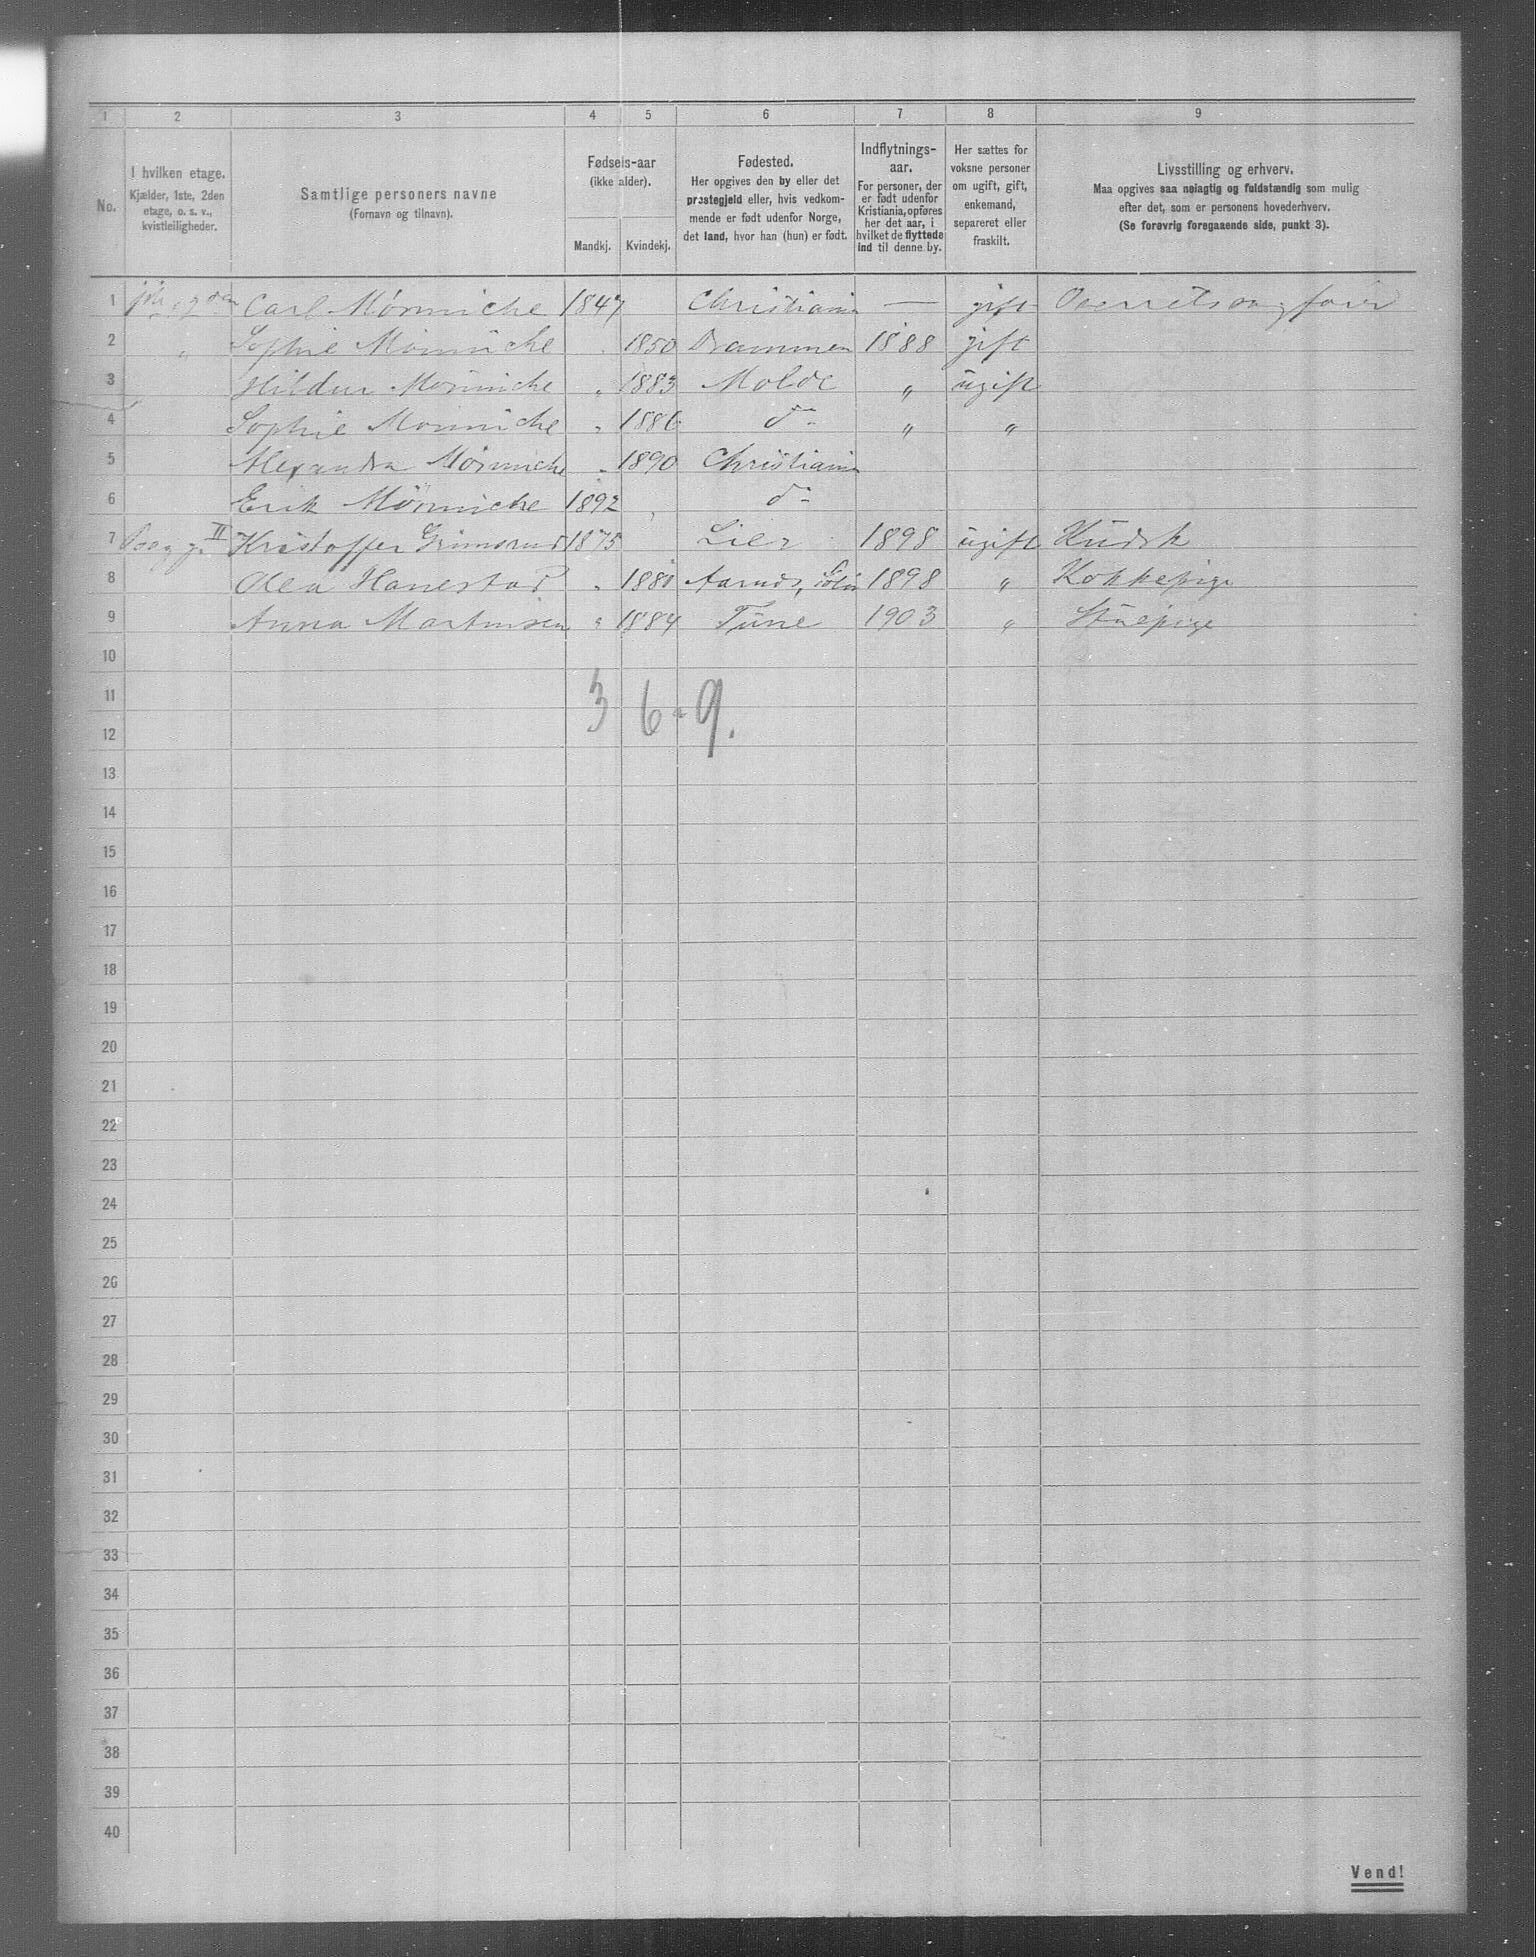 1 2 3 4 5 6 7 8 9
No.
I hvilken etage.
Kjælder, 1ste, 2den
etage, o. s. v.,
kvistleiligheder.
Samtlige personers navne
(Fornavn og tilnavn).
Fødsels-aar
(ikke alder).
Mandkj. Kvindekj.
Fødested.
Her opgives den by eller det
præstegjeld eller, hvis vedkom-
mende er født udenfor Norge,
det land, hvor han (hun) er født.
Indflytnings-
aar.
For personer, der
er født udenfor
Kristiania, opføres
her det aar, i
hvilket de flyttede
ind til denne by.
Her sættes for
voksne personer
om ugift, gift,
enkemand,
separeret eller
fraskilt.
Livsstilling og erhverv.
Maa opgives saa nøiagtig og fuldstændig som mulig
efter det, som er personens hovederhverv.
(Se forøvrig foregaaende side, punkt 3).
1 Carl Mönniche 1847 Christiania — gift Overretssagfører
2 " Sophie Mönniche " 1850 Drammen 1888 gift
3 Hildur Mönniche " 1883 Molde " ugift
4 Sophie Mönniche " 1886 do " "
5 Alexandra Mönniche " 1890 Christiania
6 Erik Mönniche 1892 " do
7 II Kristoffer Grimsrud 1875 Lier 1898 ugift Kudsk
8 Olea Hanestad " 1880 Aasnæs, Solør 1898 " Kokkepige
9 Anna Martinsen " 1884 Tune 1903 " Stuepige
10
11
3 6 - 9.
12
13
14
15
16
17
18
19
20
21
22
23
24
25
26
27
28
29
30
31
32
33
34
35
36
37
38
39
40
Vend!